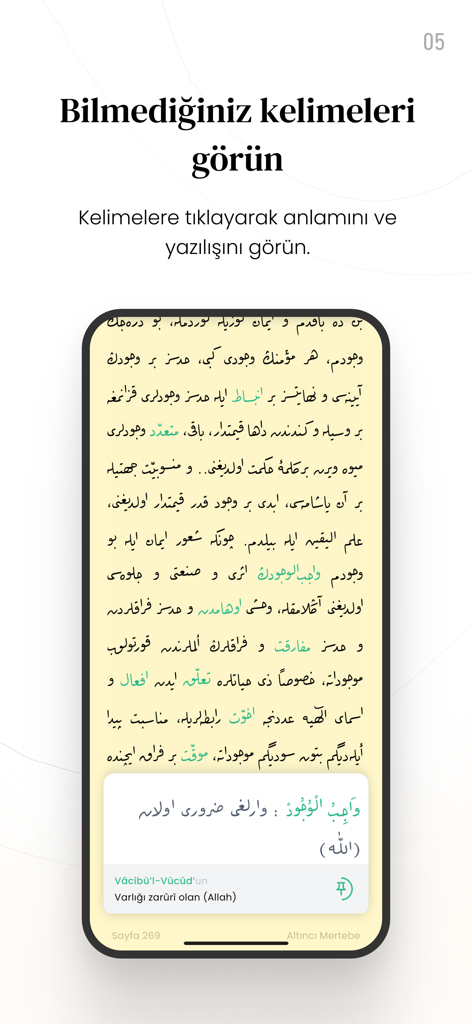 05
Bilmediğiniz kelimeleri
görün
Kelimelere tıklayarak anlamını ve
yazılışını görün.
وجودم، هر مؤمنڭ وجودی كبی، حدسز بر وجودڭ
آیینه‌سی و نهایتسز بر انبساط ایله حدسز وجودلری قزانمغه
بر وسیله و كندندن داها قیمتدار، باقی، متعدّد وجودلری
میوه ویرن بر كلمهٔ حكمت اولدیغنی.. و منسوبیّت جهتیله
بر آن یاشامه‌سی، ابدی بر وجود قدر قیمتدار اولدیغنی،
علم الیقین ایله بیلدم. چونكه شعور ایمان ایله بو
وجودم واجب‌الوجودڭ اثری و صنعتی و جلوه‌سی
اولدیغنی آڭلامقله، وحشی اوهامدن و حدسز فراقلردن
و حدسز مفارقت و فراقلرڭ المـلرندن قورتولوب
موجوداته، خصوصاً ذی حیاتلره تعلّق ایدن افعال و
اسمای الٰهیه عددنجه اخوّت رابطه‌لریله، مناسبت پیدا
ایله‌دیگم بتون سودیگم موجوداته، موقّت بر فراق ایچنده
وَاجِبُ الْوُجُودْ : وارلغی ضروری اولان
(اللّٰه)
Vâcibü’l-Vücûd’un
Varlığı zarûrî olan (Allah)
Sayfa 269
Altıncı Mertebe